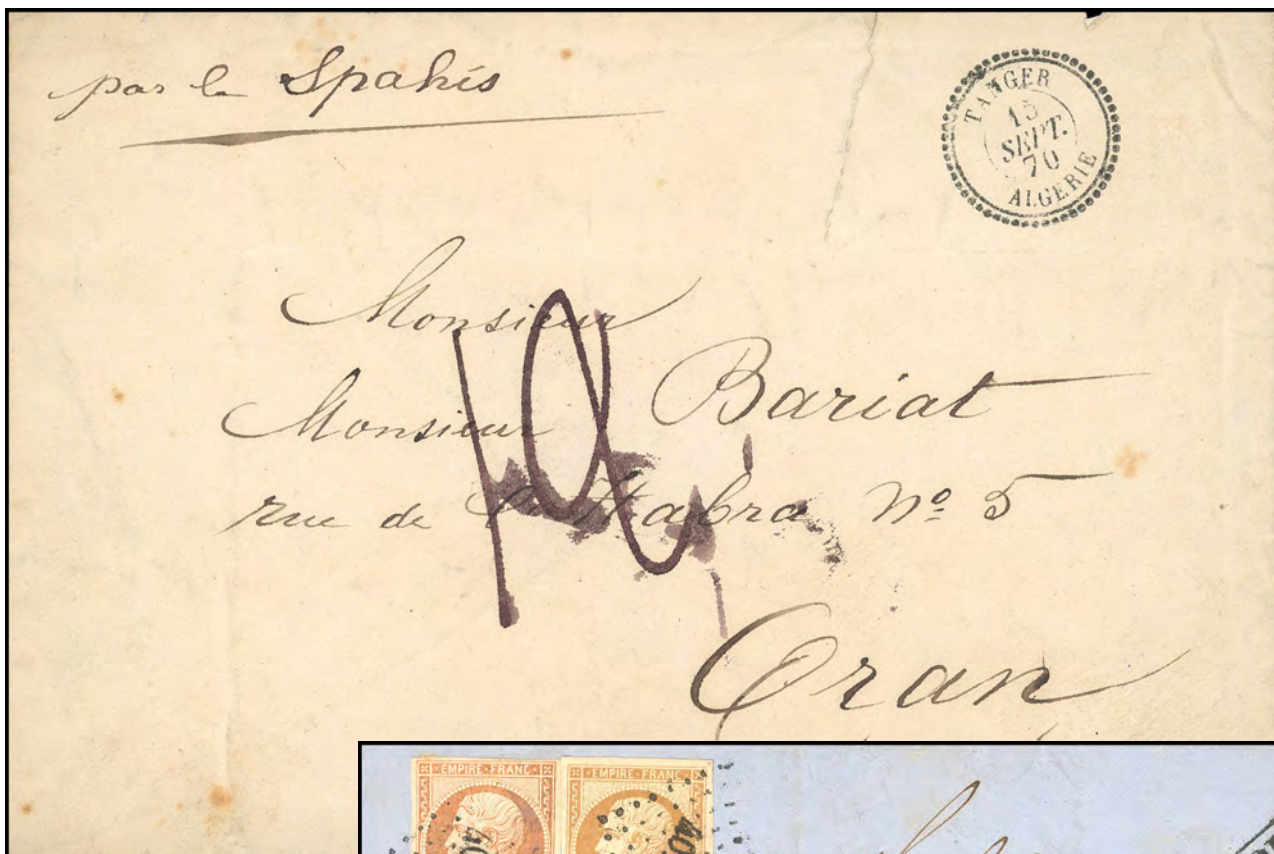 par le Spahis
TANGER
15
SEPT.
70
ALGERIE
Monsieur
Monsieur Bariat
rue de la Habra Nº 5
Oran
EMPIRE FRANC EMPIRE FRANC